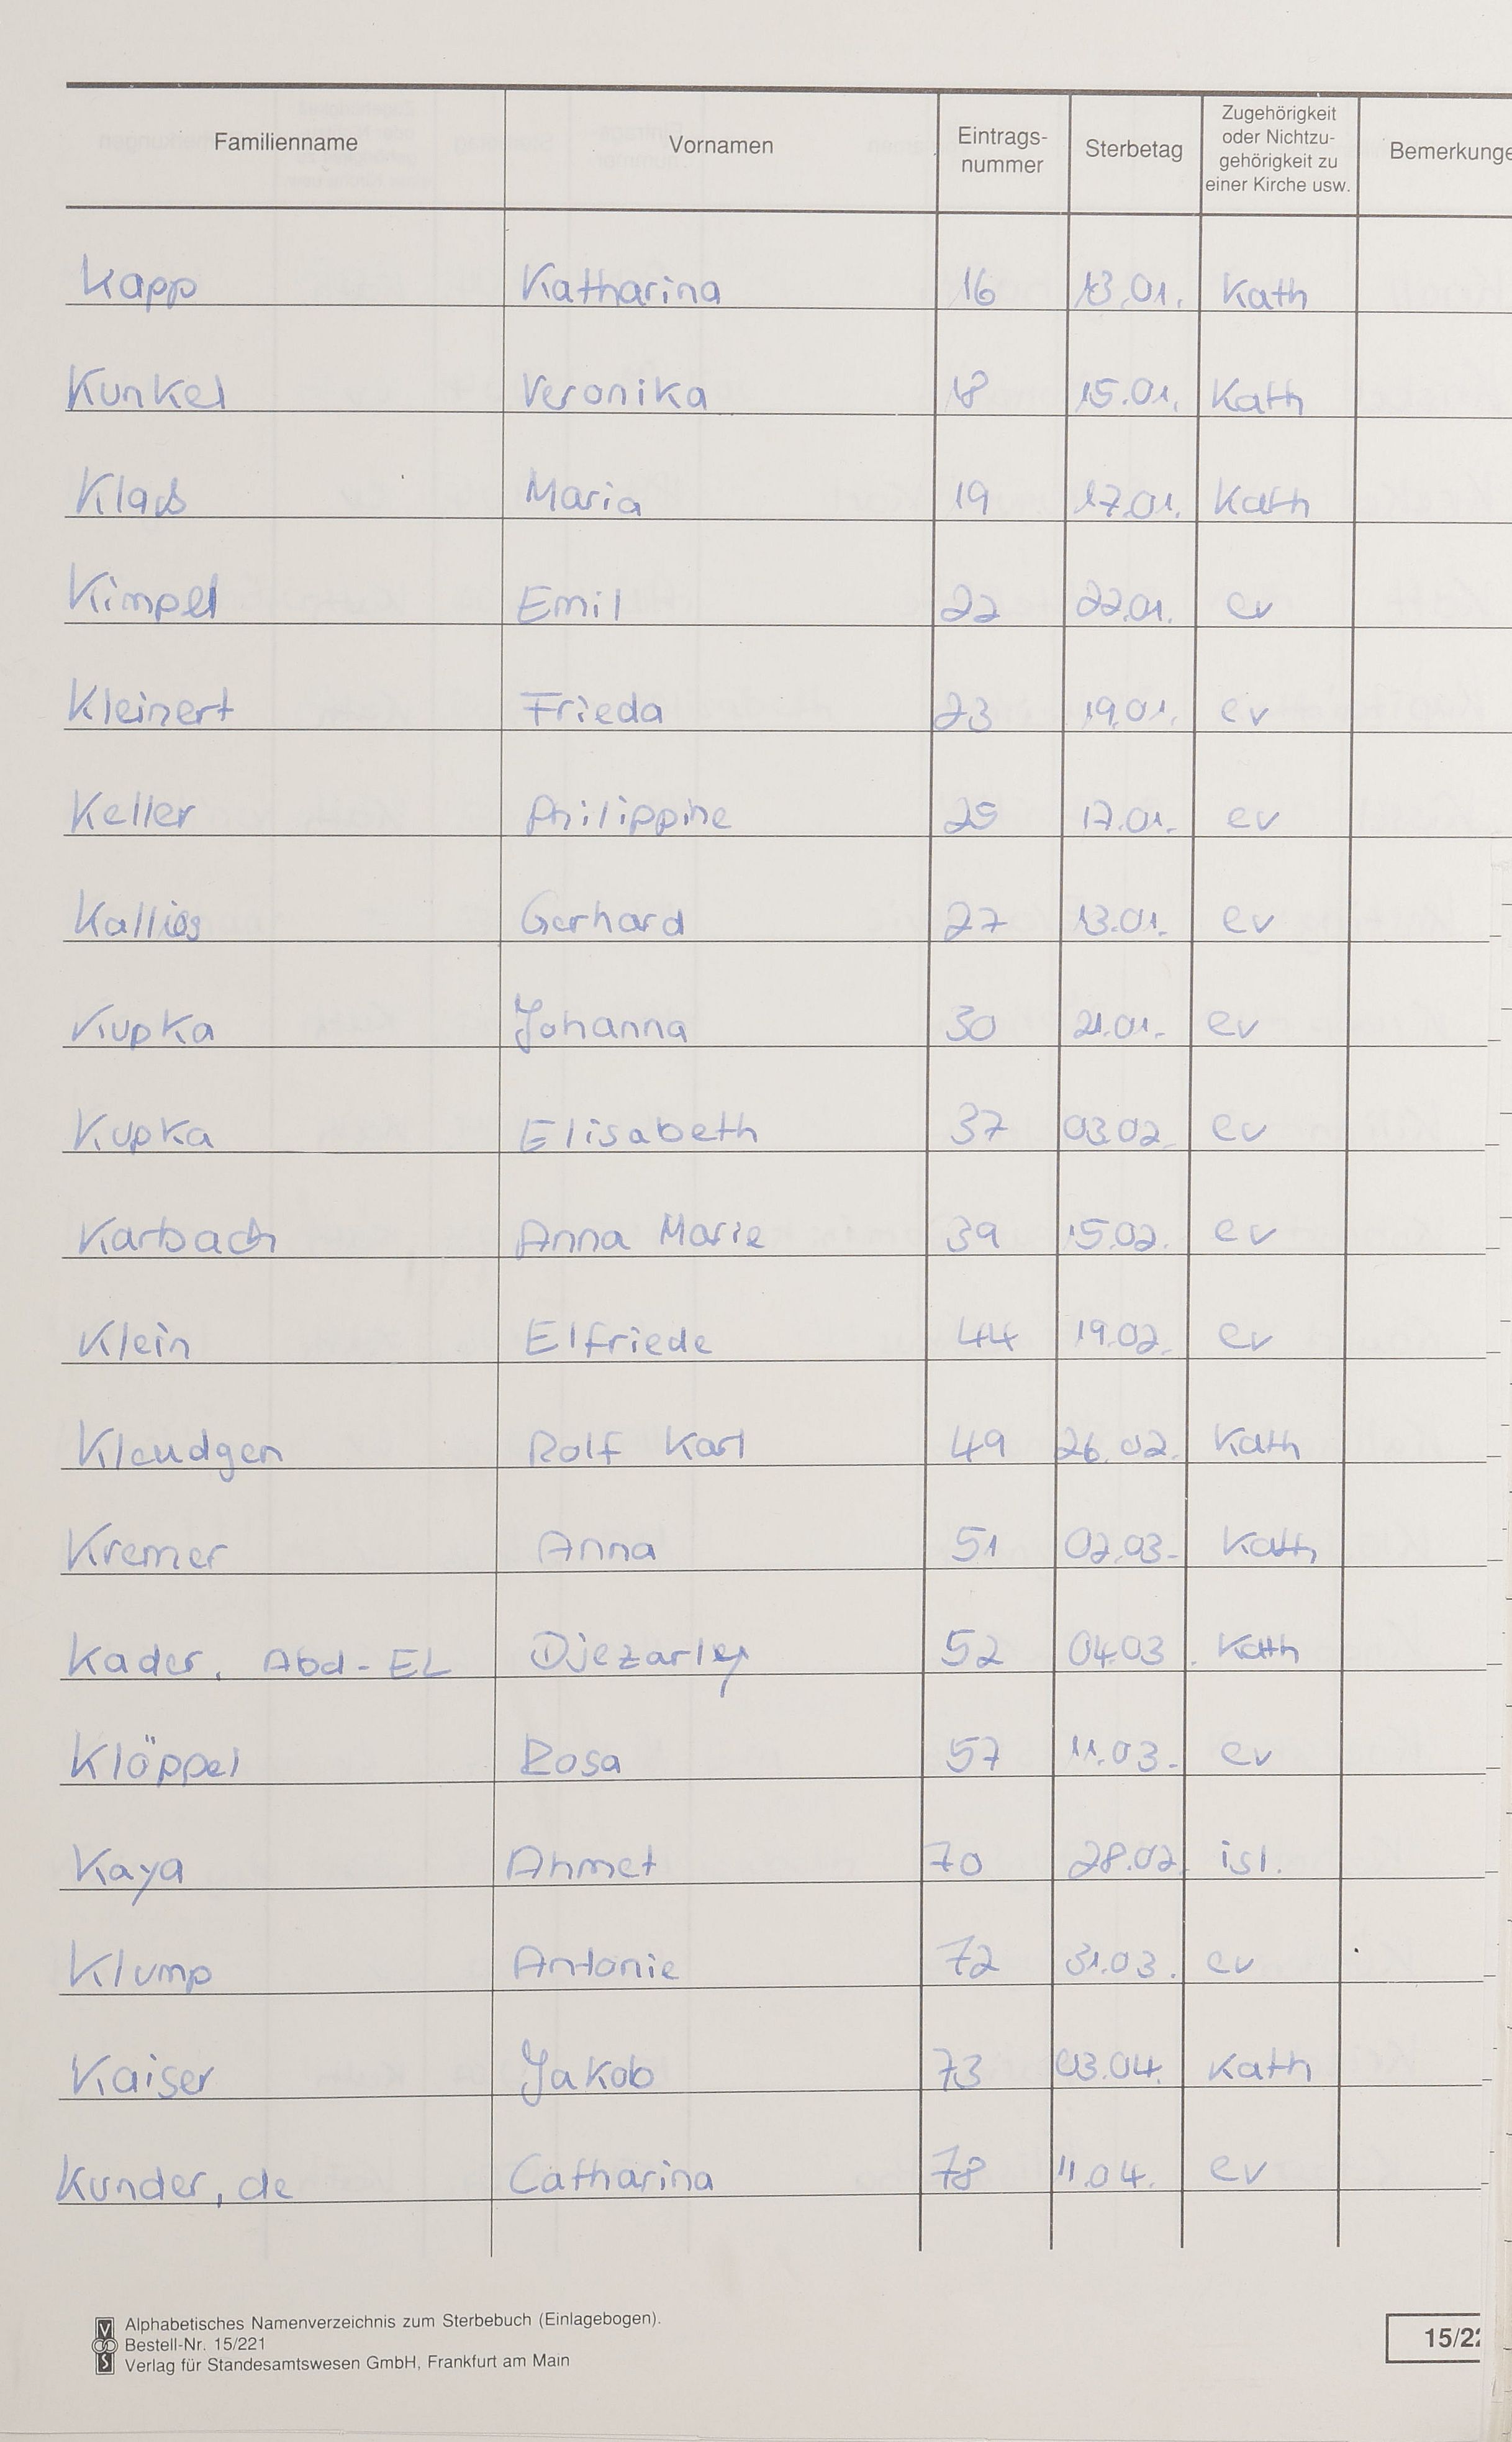 Familienname Vornamen Eintrags-nummer Sterbetag Zugehörigkeit oder Nichtzu-gehörigkeit zu einer Kirche usw. Bemerkunge
Kapp Katharina 16 13.01. Kath
Kunkel Veronika 18 15.01. Kath
Maria 19 17.01. Kath
Kimpel Emil 22 22.01. ev
Kleinert Frieda 23 19.01. ev
Keller Philippine 25 17.01. ev
Gerhard 27 13.01. ev
Kupka Johanna 30 21.01. ev
Kupka Elisabeth 37 03.02. ev
Karbach Anna Marie 39 15.02. ev
Klein Elfriede 44 19.02. ev
Kleudgen Rolf Karl 49 26.02. Kath
Kremer Anna 51 02.03. Kath
Kader, Abd-EL 52 04.03. Kath
Klöppel Rosa 57 11.03. ev
Kaya Ahmet 70 28.02. isl.
Klump Antonie 72 31.03. ev
Kaiser Jakob 73 03.04. Kath
Kunder, de Catharina 78 11.04. ev
Alphabetisches Namenverzeichnis zum Sterbebuch (Einlagebogen).
Bestell-Nr. 15/221
Verlag für Standesamtswesen GmbH, Frankfurt am Main
15/22